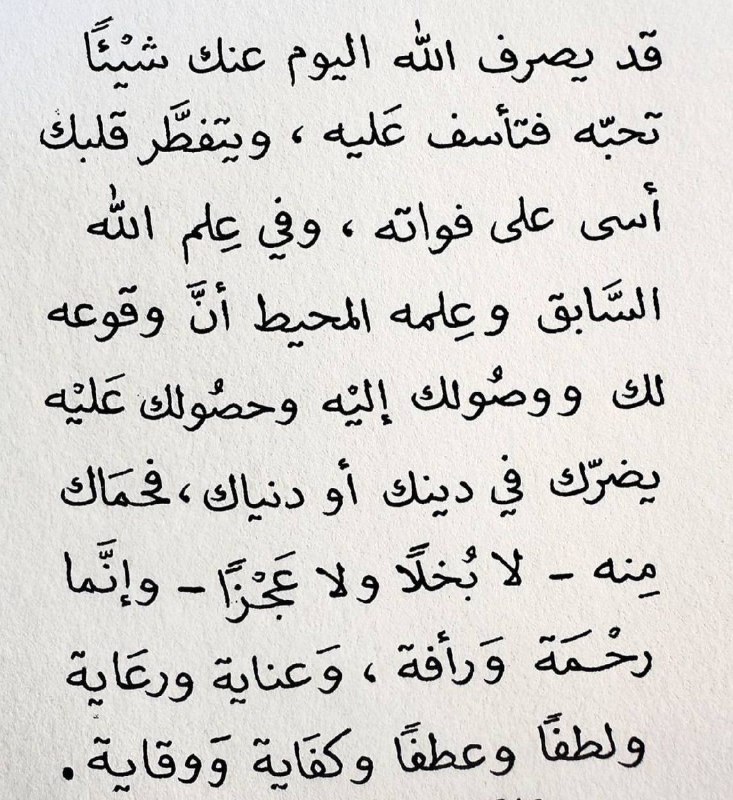 قد يصرف الله اليوم عنك شيْئًا
تحبّه فتأسف عَليه ، ويتفطَّر قلبك
أسى على فواته ، وفي عِلم الله
السَّابق وعِلمه المحيط أنَّ وقوعه
لك ووصُولك إليْه وحصُولك عَليْه
يضرّك في دينك أو دنياك ، فحمَاك
مِنه – لا بُخلًا ولا عَجْزًا – وإنَّما
رحْمَة وَرأفة ، وَعناية ورعَاية
ولطفًا وعطفًا وكفَاية وَوقاية .